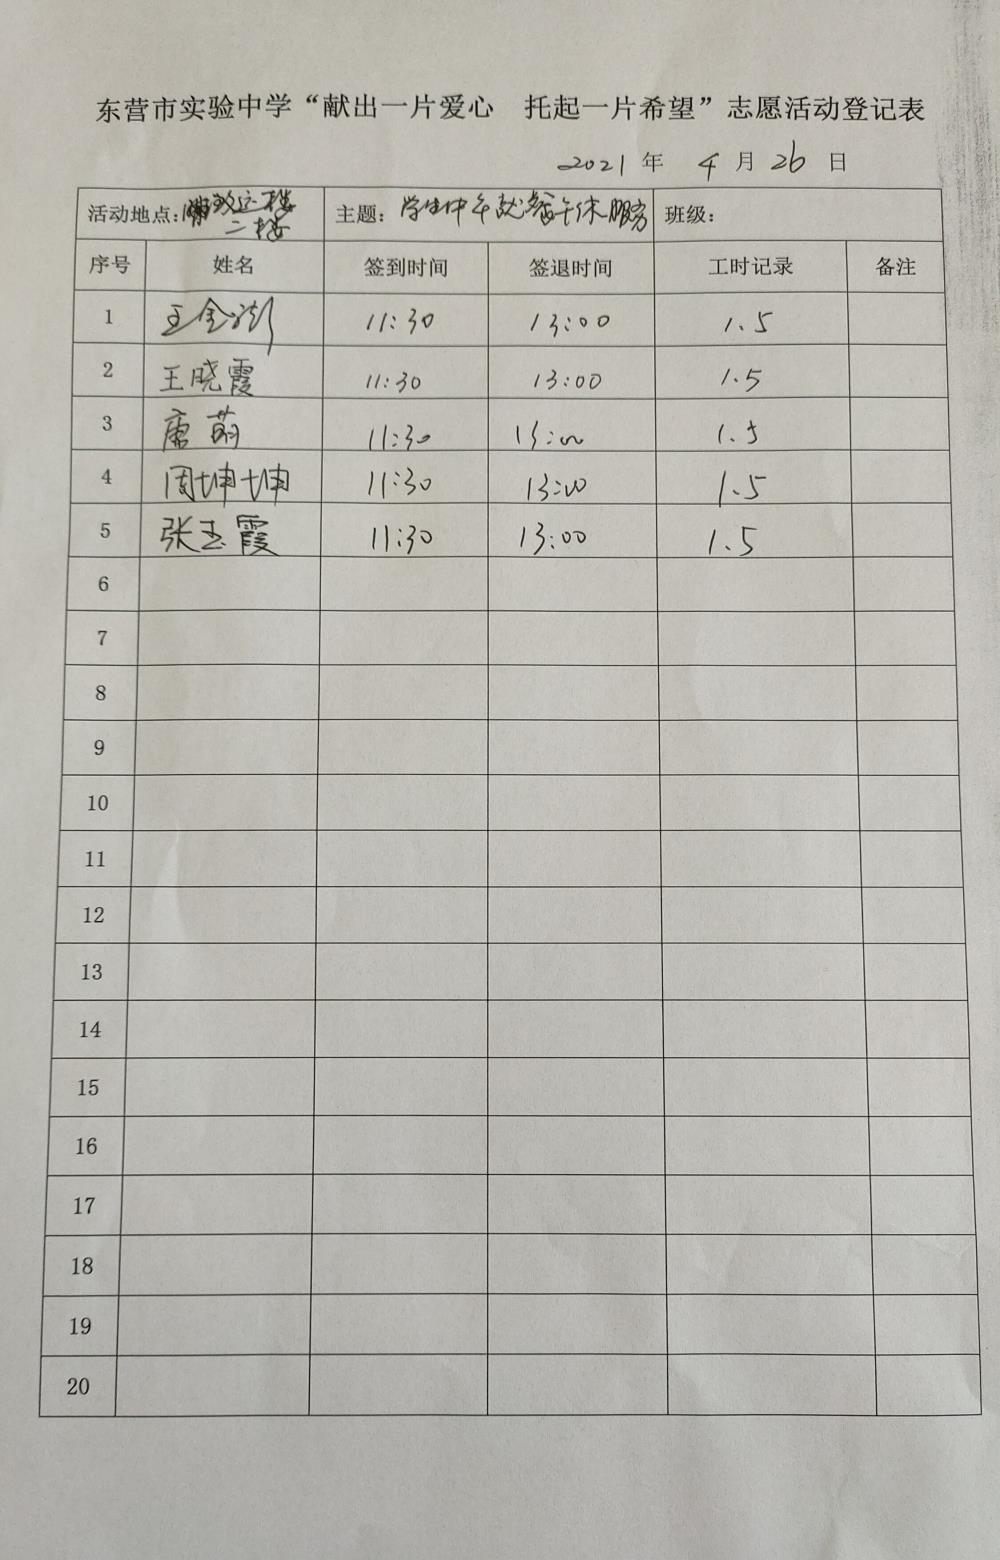 东营市实验中学“献出一片爱心 托起一片希望”志愿活动登记表
2021 年 4 月 26 日
活动地点：致远楼二楼 主题：学生中午就餐午休服务 班级：
序号 姓名 签到时间 签退时间 工时记录 备注
1 王金 11:30 13:00 1.5
2 王晓霞 11:30 13:00 1.5
3 唐萌 11:30 13:00 1.5
4 周坤坤 11:30 13:00 1.5
5 张玉霞 11:30 13:00 1.5
6
7
8
9
10
11
12
13
14
15
16
17
18
19
20